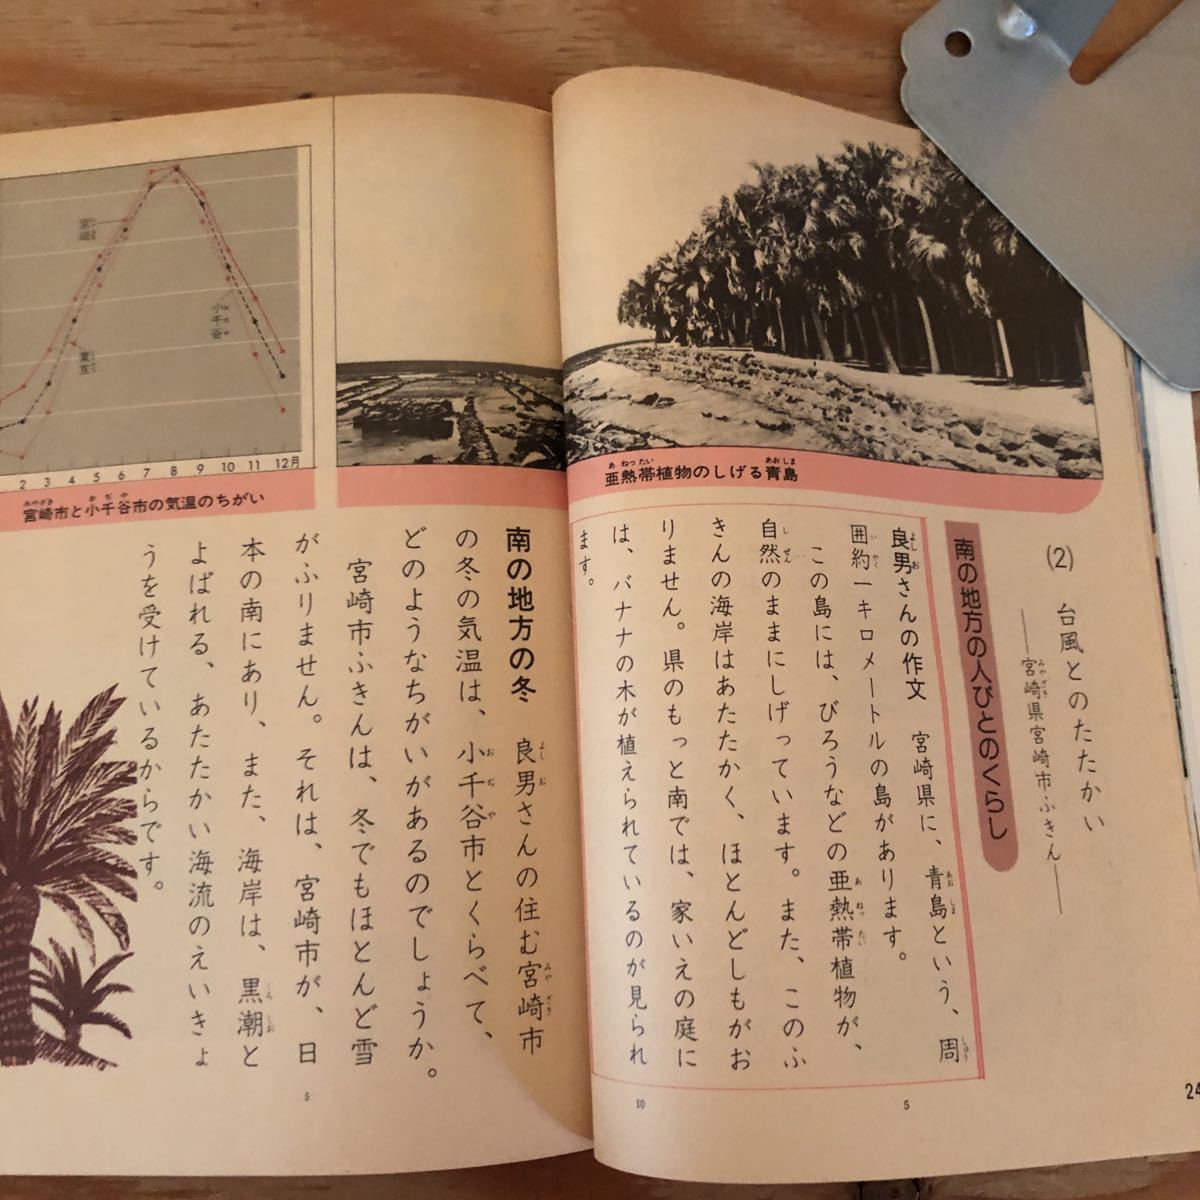 (2) 台風とのたたかい
――宮崎県宮崎市ふきん――
南の地方の人びとのくらし
良男さんの作文 宮崎県に、青島という、周
囲約一キロメートルの島があります。
この島には、びろうなどの亜熱帯植物が、
自然のままにしげっています。また、このふ
きんの海岸はあたたかく、ほとんどしもがお
りません。県のもっと南では、家いえの庭に
は、バナナの木が植えられているのが見られ
ます。
5
10
24
亜熱帯植物のしげる青島
南の地方の冬 良男さんの住む宮崎市
の冬の気温は、小千谷市とくらべて、
どのようなちがいがあるのでしょうか。
宮崎市ふきんは、冬でもほとんど雪
がふりません。それは、宮崎市が、日
本の南にあり、また、海岸は、黒潮と
よばれる、あたたかい海流のえいきょ
うを受けているからです。
5
宮崎
小千谷
東京
2 3 4 5 6 7 8 9 10 11 12月
宮崎市と小千谷市の気温のちがい